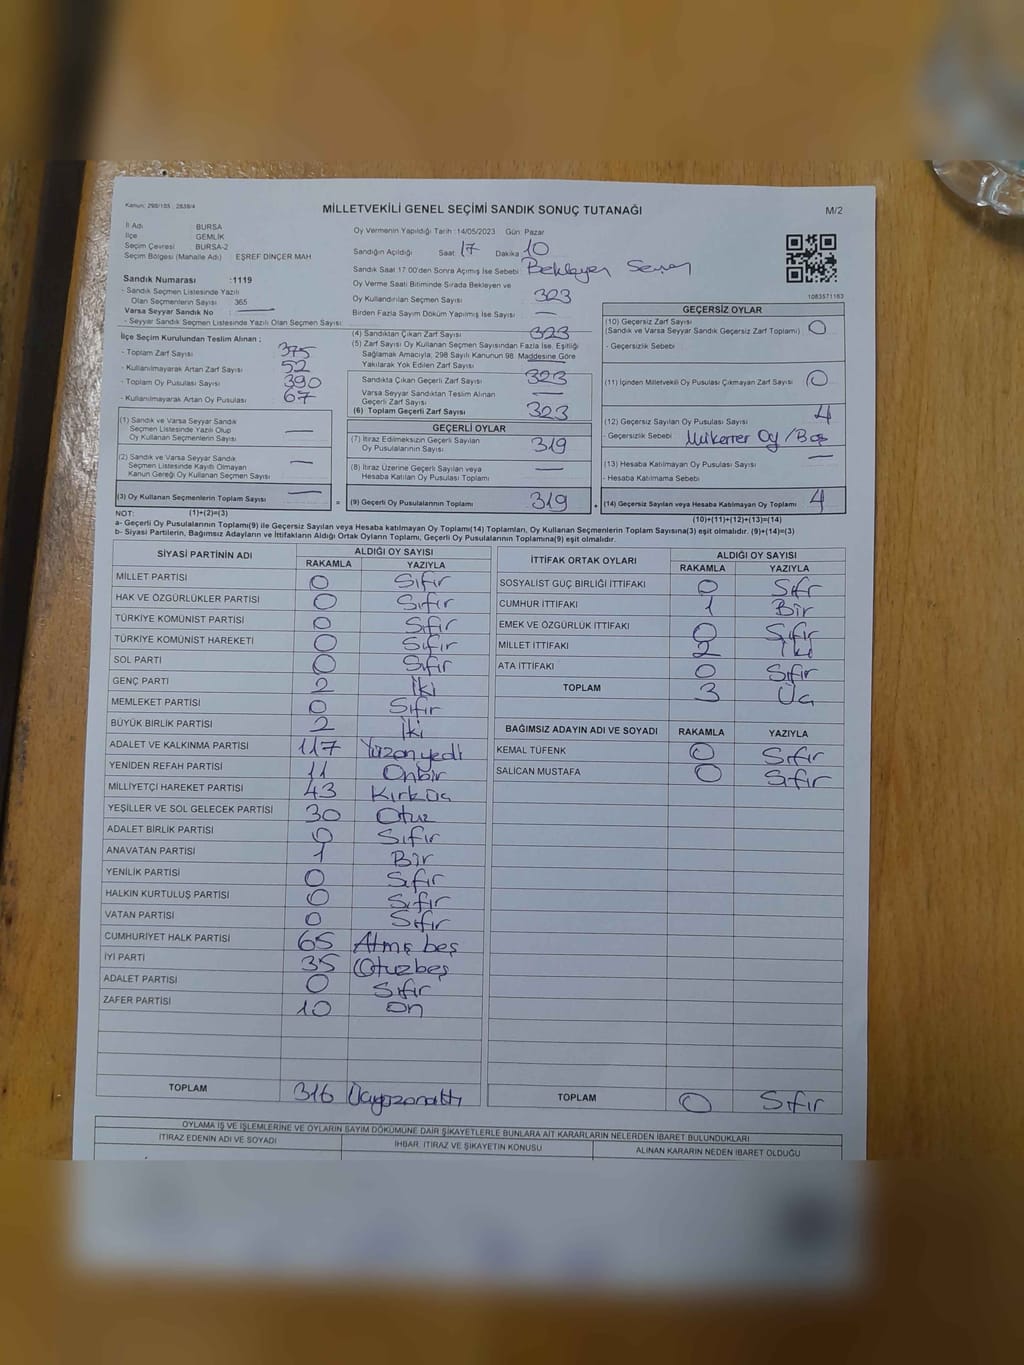 Kanun: 298/105 : 2839/4
MİLLETVEKİLİ GENEL SEÇİMİ SANDIK SONUÇ TUTANAĞI
M/2
İl Adı BURSA
İlçe GEMLİK
Seçim Çevresi BURSA-2
Seçim Bölgesi (Mahalle Adı) EŞREF DİNÇER MAH
Sandık Numarası :1119
- Sandık Seçmen Listesinde Yazılı
Olan Seçmenlerin Sayısı : 365
Varsa Seyyar Sandık No
- Seyyar Sandık Seçmen Listesinde Yazılı Olan Seçmen Sayısı:
Oy Vermenin Yapıldığı Tarih :14/05/2023 Gün: Pazar
Sandığın Açıldığı Saat 17 Dakika 10
Sandık Saat 17.00'den Sonra Açılmış İse Sebebi Bekleyen
Oy Verme Saati Bitiminde Sırada Bekleyen ve
Oy Kullandırılan Seçmen Sayısı 323
Birden Fazla Sayım Döküm Yapılmış İse Sayısı : —
1083571163
İlçe Seçim Kurulundan Teslim Alınan :
- Toplam Zarf Sayısı : 375
- Kullanılmayarak Artan Zarf Sayısı : 52
- Toplam Oy Pusulası Sayısı : 390
- Kullanılmayarak Artan Oy Pusulası : 67
(1) Sandık ve Varsa Seyyar Sandık
Seçmen Listesinde Yazılı Olup
Oy Kullanan Seçmenlerin Sayısı —
(2) Sandık ve Varsa Seyyar Sandık
Seçmen Listesinde Kayıtlı Olmayan
Kanun Gereği Oy Kullanan Seçmen Sayısı —
(3) Oy Kullanan Seçmenlerin Toplam Sayısı —
(4) Sandıktan Çıkan Zarf Sayısı 323
(5) Zarf Sayısı Oy Kullanan Seçmen Sayısından Fazla İse, Eşitliği
Sağlamak Amacıyla; 298 Sayılı Kanunun 98. Maddesine Göre
Yakılarak Yok Edilen Zarf Sayısı —
Sandıkta Çıkan Geçerli Zarf Sayısı 323
Varsa Seyyar Sandıktan Teslim Alınan
Geçerli Zarf Sayısı —
(6) Toplam Geçerli Zarf Sayısı 323
GEÇERLİ OYLAR
(7) İtiraz Edilmeksizin Geçerli Sayılan
Oy Pusulalarının Sayısı 319
(8) İtiraz Üzerine Geçerli Sayılan veya
Hesaba Katılan Oy Pusulası Toplamı —
= (9) Geçerli Oy Pusulalarının Toplamı 319 +
GEÇERSİZ OYLAR
(10) Geçersiz Zarf Sayısı
(Sandık ve Varsa Seyyar Sandık Geçersiz Zarf Toplamı) 0
- Geçersizlik Sebebi
(11) İçinden Milletvekili Oy Pusulası Çıkmayan Zarf Sayısı 0
(12) Geçersiz Sayılan Oy Pusulası Sayısı 4
- Geçersizlik Sebebi Mükerrer Oy / Boş
(13) Hesaba Katılmayan Oy Pusulası Sayısı —
- Hesaba Katılmama Sebebi
(14) Geçersiz Sayılan veya Hesaba Katılmayan Oy Toplamı 4
NOT: (1)+(2)=(3)
(10)+(11)+(12)+(13)=(14)
a- Geçerli Oy Pusulalarının Toplamı(9) ile Geçersiz Sayılan veya Hesaba katılmayan Oy Toplamı(14) Toplamları, Oy Kullanan Seçmenlerin Toplam Sayısına(3) eşit olmalıdır. (9)+(14)=(3)
b- Siyasi Partilerin, Bağımsız Adayların ve İttifakların Aldığı Ortak Oyların Toplamı, Geçerli Oy Pusulalarının Toplamına(9) eşit olmalıdır.
SİYASİ PARTİNİN ADI ALDIĞI OY SAYISI
RAKAMLA YAZIYLA
MİLLET PARTİSİ 0 Sıfır
HAK VE ÖZGÜRLÜKLER PARTİSİ 0 Sıfır
TÜRKİYE KOMÜNİST PARTİSİ 0 Sıfır
TÜRKİYE KOMÜNİST HAREKETİ 0 Sıfır
SOL PARTİ 0 Sıfır
GENÇ PARTİ 2 İki
MEMLEKET PARTİSİ 0 Sıfır
BÜYÜK BİRLİK PARTİSİ 2 İki
ADALET VE KALKINMA PARTİSİ 117 Yüzonyedi
YENİDEN REFAH PARTİSİ 11 Onbir
MİLLİYETÇİ HAREKET PARTİSİ 43 Kırküç
YEŞİLLER VE SOL GELECEK PARTİSİ 30 Otuz
ADALET BİRLİK PARTİSİ 0 Sıfır
ANAVATAN PARTİSİ 1 Bir
YENİLİK PARTİSİ 0 Sıfır
HALKIN KURTULUŞ PARTİSİ 0 Sıfır
VATAN PARTİSİ 0 Sıfır
CUMHURİYET HALK PARTİSİ 65 Atmş beş
İYİ PARTİ 35 Otuzbeş
ADALET PARTİSİ 0 Sıfır
ZAFER PARTİSİ 10 On
TOPLAM 316 Üçyüzonaltı
İTTİFAK ORTAK OYLARI ALDIĞI OY SAYISI
RAKAMLA YAZIYLA
SOSYALİST GÜÇ BİRLİĞİ İTTİFAKI 0 Sıfr
CUMHUR İTTİFAKI 1 Bir
EMEK VE ÖZGÜRLÜK İTTİFAKI 0 Sıfır
MİLLET İTTİFAKI 2 İki
ATA İTTİFAKI 0 Sıfır
TOPLAM 3 Üç
BAĞIMSIZ ADAYIN ADI VE SOYADI RAKAMLA YAZIYLA
KEMAL TÜFENK 0 Sıfır
SALİCAN MUSTAFA 0 Sıfır
TOPLAM 0 Sıfır
OYLAMA İŞ VE İŞLEMLERİNE VE OYLARIN SAYIM DÖKÜMÜNE DAİR ŞİKAYETLERLE BUNLARA AİT KARARLARIN NELERDEN İBARET BULUNDUKLARI
İTİRAZ EDENİN ADI VE SOYADI İHBAR, İTİRAZ VE ŞİKAYETİN KONUSU ALINAN KARARIN NEDEN İBARET OLDUĞU